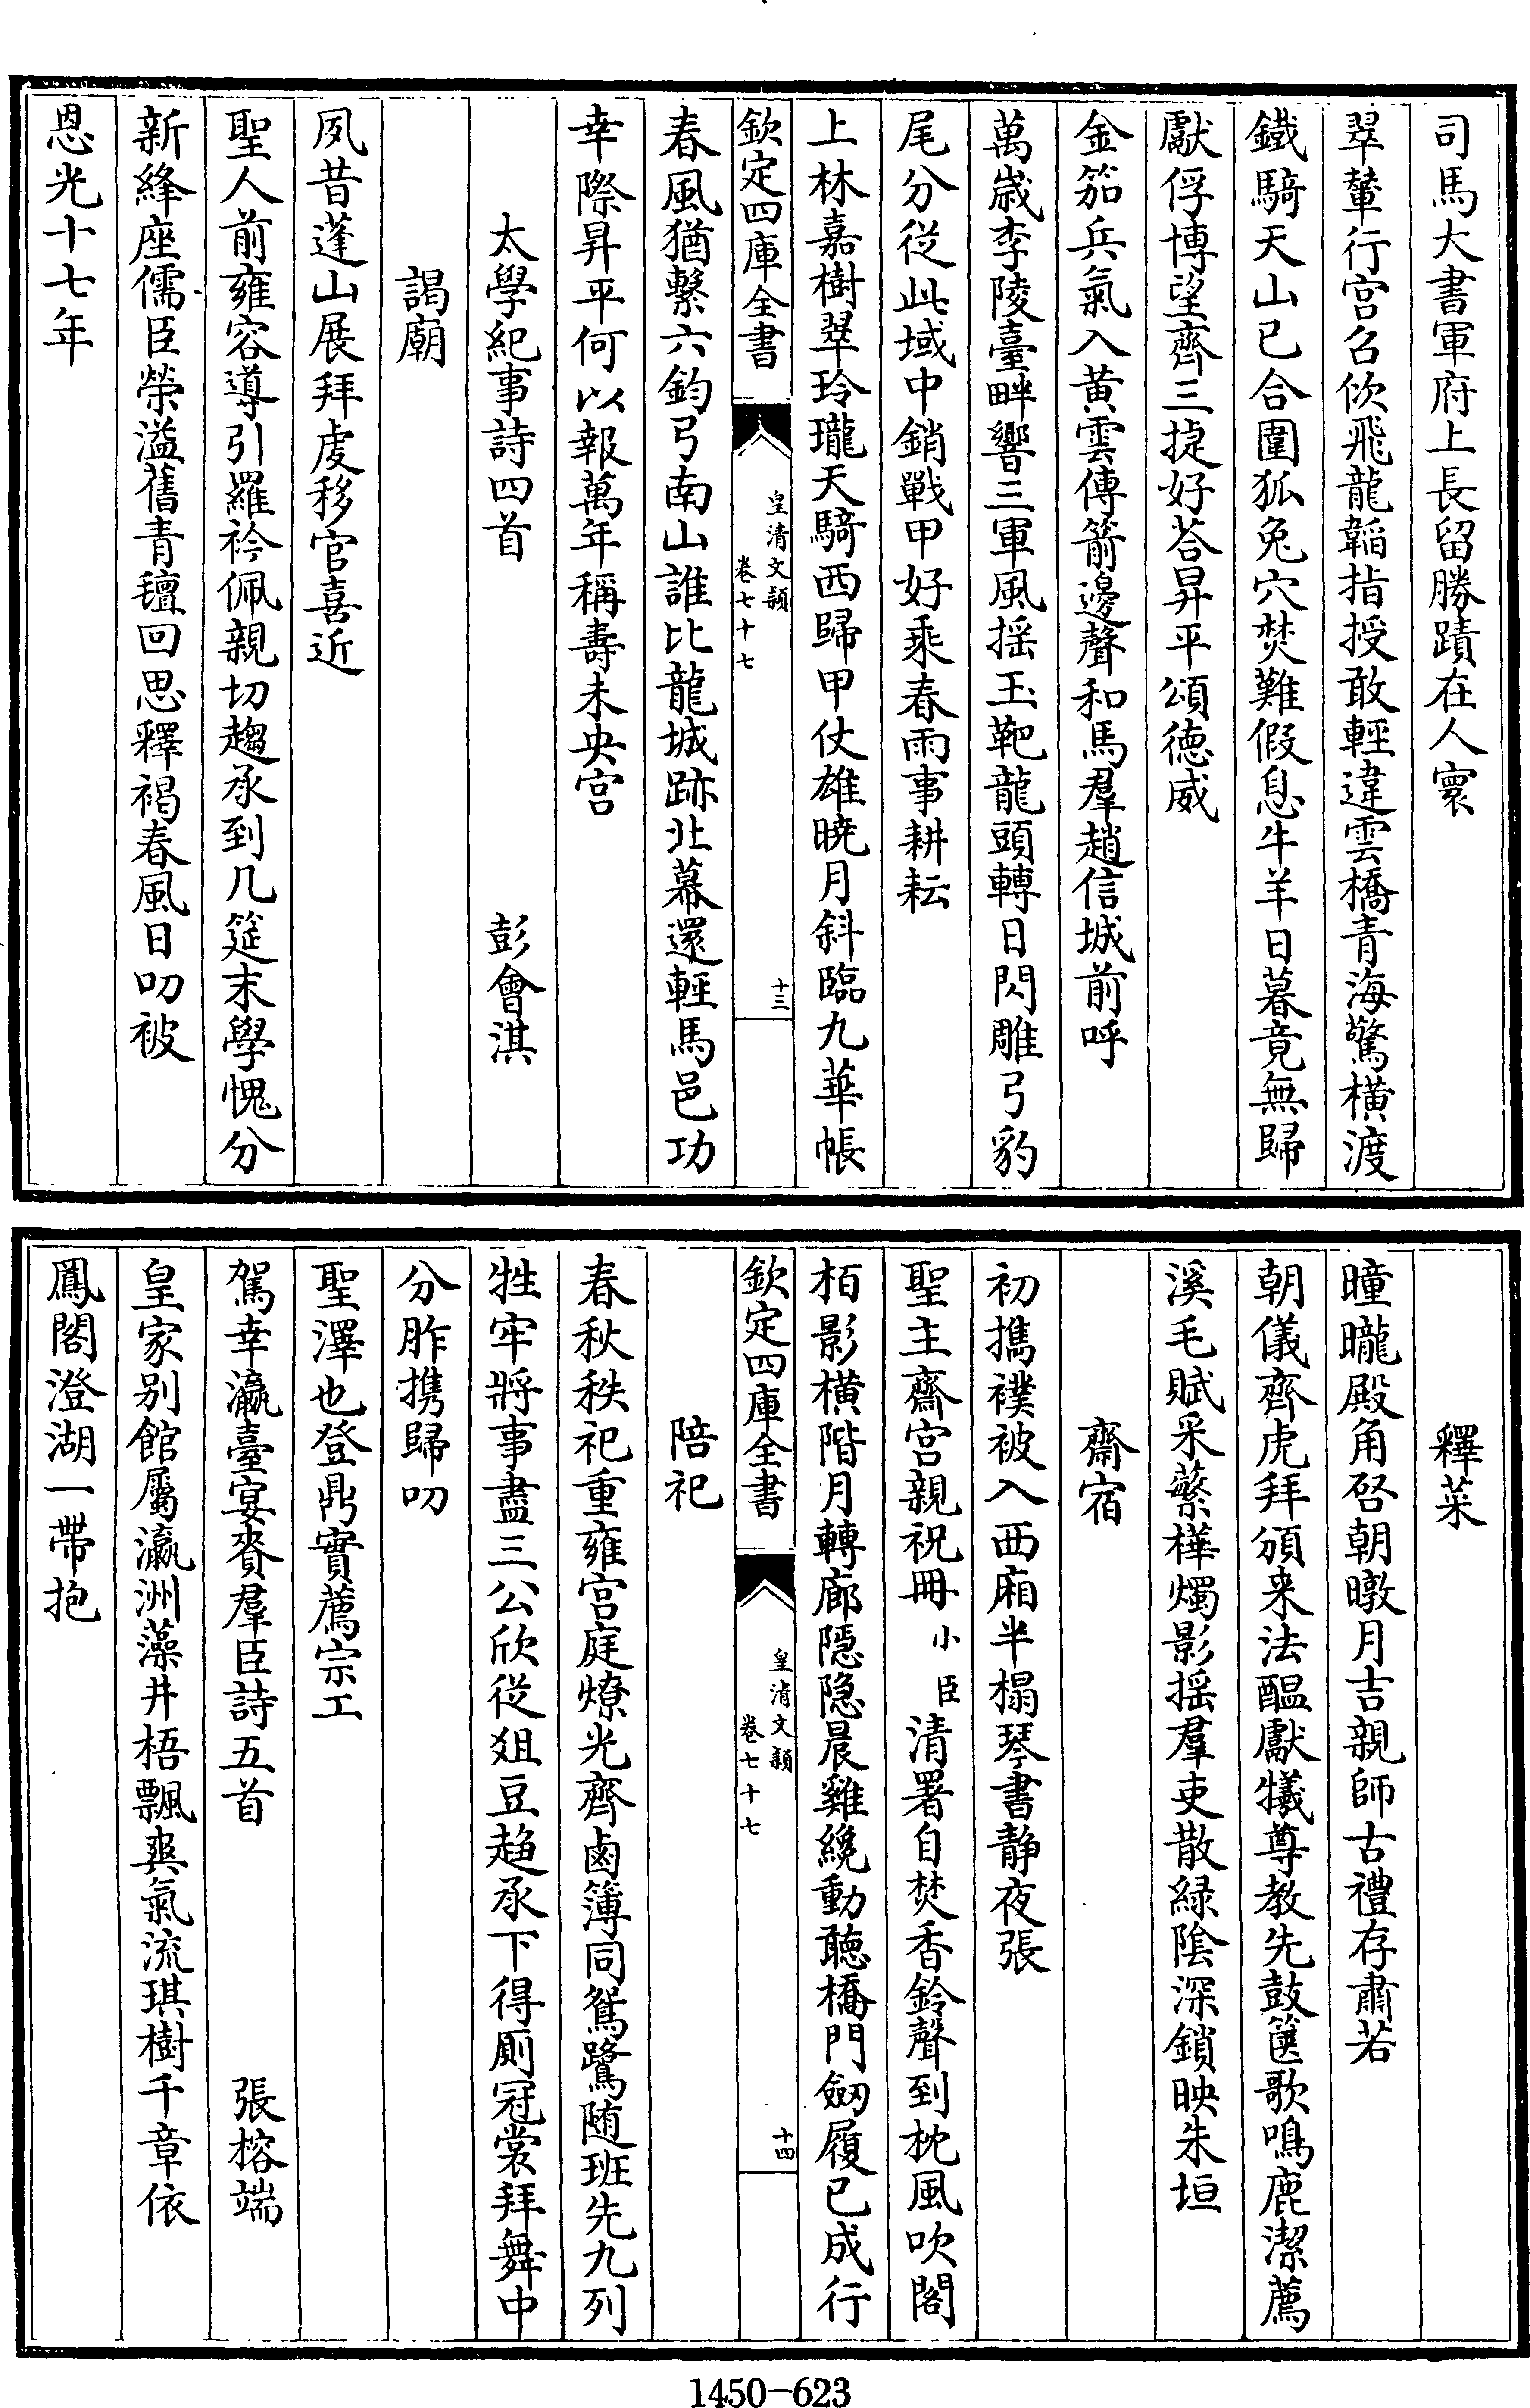 司馬大書軍府上長留勝蹟在人寰
翠輦行宮名佽飛龍韜指授敢輕違雲橋青海驚橫渡
鐵騎天山已合圍狐兔穴焚難假息牛羊日暮竟無歸
獻俘博望齊三捷好荅昇平頌德威
金笳兵氣入黃雲傳箭邊聲和馬羣趙信城前呼
萬歲李陵臺畔響三軍風揺玉靶龍頭轉日閃雕弓豹
尾分從此域中銷戰甲好乘春雨事耕耘
上林嘉樹翠玲瓏天騎西歸甲仗雄曉月斜臨九華帳
欽定四庫全書
皇清文穎
卷七十七
十三
春風猶繫六鈞弓南山誰比龍城跡北幕還輕馬邑功
幸際昇平何以報萬年稱壽未央宮
太學紀事詩四首 彭會淇
謁廟
夙昔蓬山展拜虔移官喜近
聖人前雍容導引羅衿佩親切趨承到几筵末學愧分
新絳座儒臣榮溢舊青氊回思釋褐春風日叨被
恩光十七年
釋菜
曈曨殿角啓朝暾月吉親師古禮存肅若
朝儀齊虎拜頒来法醞獻犧尊教先鼓篋歌鳴鹿潔薦
溪毛賦采蘩樺燭影揺羣吏散綠陰深鎖映朱垣
齋宿
初擕襆被入西廂半榻琴書靜夜張
聖主齋宮親祝冊小臣清署自焚香鈴聲到枕風吹閣
栢影橫階月轉廊隱隱晨雞纔動聽橋門劒履已成行
欽定四庫全書
皇清文穎
卷七十七
十四
陪祀
春秋秩祀重雍宮庭燎光齊鹵簿同鴛鷺随班先九列
牲牢將事盡三公欣從爼豆趋承下得厠冠裳拜舞中
分胙携歸叨
聖澤也登鼎實薦宗工
駕幸瀛臺宴賚羣臣詩五首 張榕端
皇家别館屬瀛洲藻井梧飄爽氣流琪樹千章依
鳳閣澄湖一帶抱
1450-623